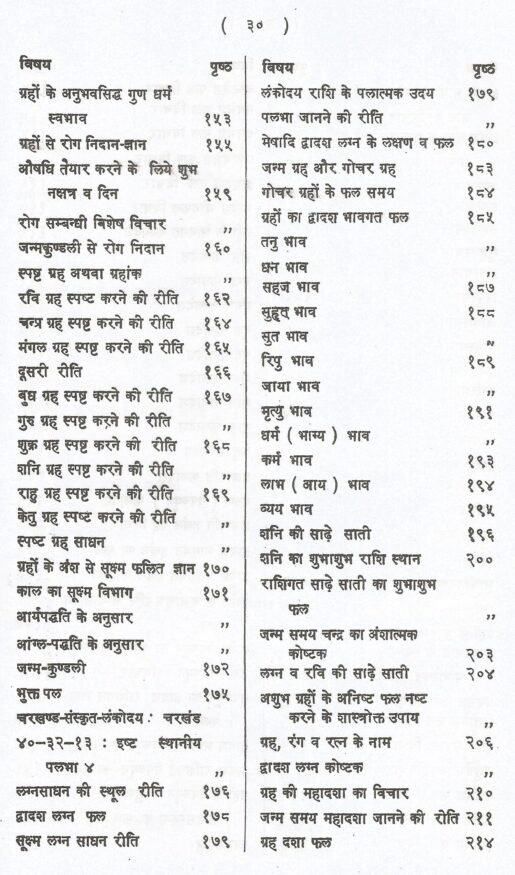 ( ३० )
विषय पृष्ठ
ग्रहों के अनुभवसिद्ध गुण धर्म
स्वभाव १५३
ग्रहों से रोग निदान-ज्ञान १५५
औषधि तैयार करने के लिये शुभ
नक्षत्र व दिन १५९
रोग सम्बन्धी विशेष विचार ,,
जन्मकुण्डली से रोग निदान १६०
स्पष्ट ग्रह अथवा ग्रहांक ,,
रवि ग्रह स्पष्ट करने की रीति १६२
चन्द्र ग्रह स्पष्ट करने की रीति १६४
मंगल ग्रह स्पष्ट करने की रीति १६५
दूसरी रीति १६६
बुध ग्रह स्पष्ट करने की रीति १६७
गुरु ग्रह स्पष्ट करने की रीति ,,
शुक्र ग्रह स्पष्ट करने की रीति १६८
शनि ग्रह स्पष्ट करने की रीति ,,
राहु ग्रह स्पष्ट करने की रीति १६९
केतु ग्रह स्पष्ट करने की रीति ,,
स्पष्ट ग्रह साधन ,,
ग्रहों के अंश से सूक्ष्म फलित ज्ञान १७०
काल का सूक्ष्म विभाग १७१
आर्यपद्धति के अनुसार ,,
आंग्ल-पद्धति के अनुसार ,,
जन्म-कुण्डली १७२
भुक्त पल १७५
चरखण्ड-संस्कृत-लंकोदय : चरखंड
४०-३२-१३ : इष्ट स्थानीय
पलभा ४ ,,
लग्नसाधन की स्थूल रीति १७६
द्वादश लग्न फल १७८
सूक्ष्म लग्न साधन रीति १७९
विषय पृष्ठ
लंकोदय राशि के पलात्मक उदय १७९
पलभा जानने की रीति ,,
मेषादि द्वादश लग्न के लक्षण व फल १८०
जन्म ग्रह और गोचर ग्रह १८३
गोचर ग्रहों के फल समय १८४
ग्रहों का द्वादश भावगत फल १८५
तनु भाव ,,
धन भाव ,,
सहज भाव १८७
सुहृत् भाव १८८
सुत भाव ,,
रिपु भाव १८९
जाया भाव ,,
मृत्यु भाव १९१
धर्म ( भाग्य ) भाव ,,
कर्म भाव १९३
लाभ ( आय ) भाव १९४
व्यय भाव १९५
शनि की साढ़े साती १९६
शनि का शुभाशुभ राशि स्थान २००
राशिगत साढ़े साती का शुभाशुभ
फल ,,
जन्म समय चन्द्र का अंशात्मक
कोष्टक २०३
लग्न व रवि की साढ़े साती २०४
अशुभ ग्रहों के अनिष्ट फल नष्ट
करने के शास्त्रोक्त उपाय ,,
ग्रह, रंग व रत्न के नाम २०६
द्वादश लग्न कोष्टक ,,
ग्रह की महादशा का विचार २१०
जन्म समय महादशा जानने की रीति २११
ग्रह दशा फल २१४